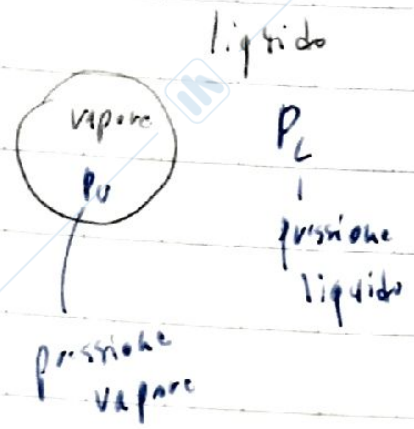 liquido
vapore
Pv
PL
pressione
liquido
pressione
vapore